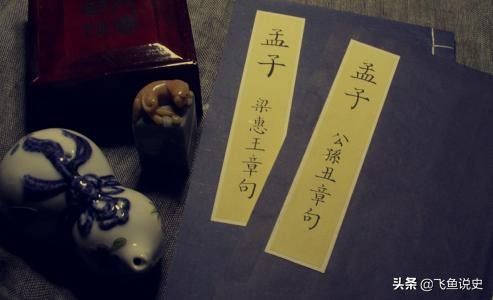 孟子
梁惠王章句
孟子
公孫丑章句
头条 @飞鱼说史